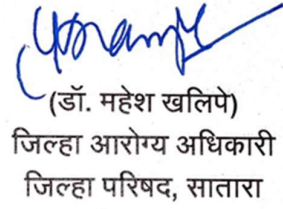 (डॉ. महेश खलिपे)
जिल्हा आरोग्य अधिकारी
जिल्हा परिषद, सातारा